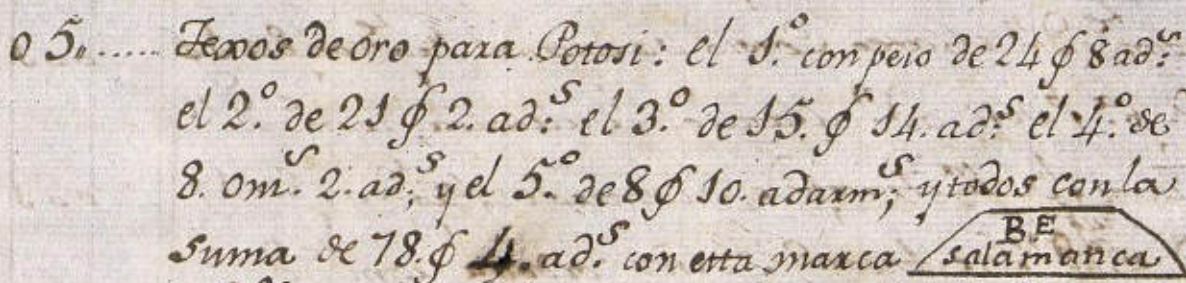 05...... Texos de oro para Potosi: el 1.º con peso de 24 ₲ 8 ad.ˢ
el 2.º de 21 ₲ 2. ad.ˢ el 3.º de 15. ₲ 14. ad.ˢ el 4.º de
8. om.ˢ 2. ad.ˢ, y el 5.º de 8 ₲ 10. adarm.ˢ; y todos con la
suma de 78. ₲ 4. ad.ˢ con esta marca BE Salamanca